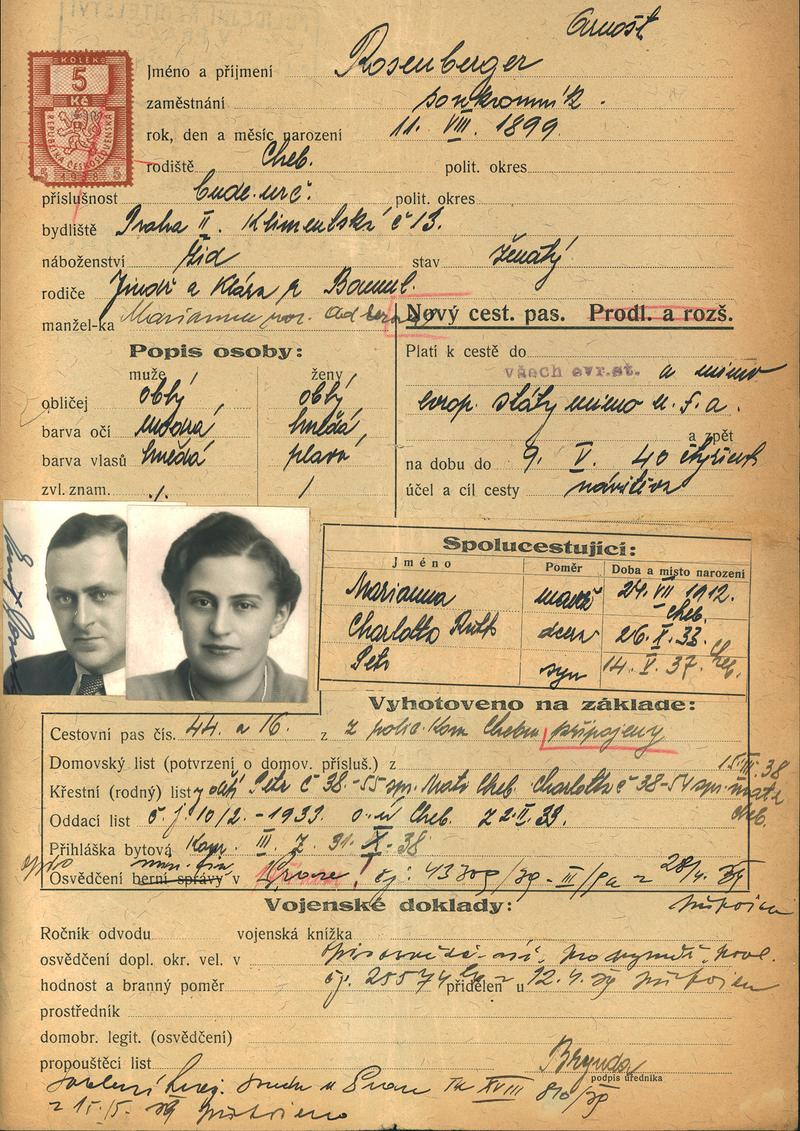 Arnošt
Jméno a příjmení Rosenberger
KOLEK
5
Kč
REPUBLIKA ČESKOSLOVENSKÁ
5 1938 5
zaměstnání soukromník.
rok, den a měsíc narození 11. VIII. 1899
rodiště Cheb. polit. okres
příslušnost bude urč. polit. okres
bydliště Praha II. Klimentská č 13.
náboženství žid stav ženatý
rodiče Jindř a Klára r
manžel-ka Marianna
Nový cest. pas. Prodl. a rozš.
Popis osoby:
muže ženy
obličej oblý oblý
barva očí modrá hnědá
barva vlasů hnědá plavá
zvl. znam. ./. /
Platí k cestě do
všech evr. st. a mimo
evrop. státy mimo u. s. a.
a zpět
na dobu do 9. V. 40
účel a cíl cesty návštěva
Spolucestující:
Jméno Poměr Doba a místo narození
Marianna manž 24. VII 1912. Cheb.
Charlotta Ruth dcera 26. X. 33.
Petr syn 14. V. 37. Cheb.
Vyhotoveno na základe:
Cestovní pas čís. 44. a 16. z z polic. kom Chebu připojeny
Domovský list (potvrzení o domov. přísluš.) z 15. III. 38
Křestní (rodný) listy dětí Petr č 38.-55 spr. Cheb. Charlotta č 38-54 spr.
Cheb.
Oddací list č. j. 10/2. - 1933. Cheb. z 22. I. 33.
Přihláška bytová III. 7. 31. X. 38
Osvědčení berní správy v Praze čj: z 28/4. 39
Vojenské doklady:
Ročník odvodu vojenská knížka
osvědčení dopl. okr. vel. v
hodnost a branný poměr čj. 25574 přidělen u 12. 4. 39
prostředník
domobr. legit. (osvědčení)
propouštěcí list Brynda
podpis úředníka
XVIII 810/39
z 15./5. 39